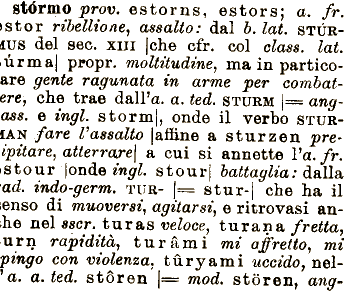 stórmo prov. estorns, estors; a. fr.
estor ribellione, assalto: dal b. lat. STÚR-
MUS del sec. XIII |che cfr. col class. lat.
túrma| propr. moltitudine, ma in partico-
are gente ragunata in arme per combat-
ere, che trae dall'a. a. ted. STURM |= ang-
ass. e ingl. storm|, onde il verbo STUR-
MAN fare l'assalto |affine a sturzen pre-
ipitare, atterrare| a cui si annette l'a. fr.
estour |onde ingl. stour| battaglia: dalla
rad. indo-germ. TUR- |= stur-| che ha il
senso di muoversi, agitarsi, e ritrovasi an-
che nel sscr. turas veloce, turana fretta,
turṇ rapidità, turâmi mi affretto, mi
spingo con violenza, tûryami uccido, nel-
l'a. a. ted. stôren |= mod. stören, ang-